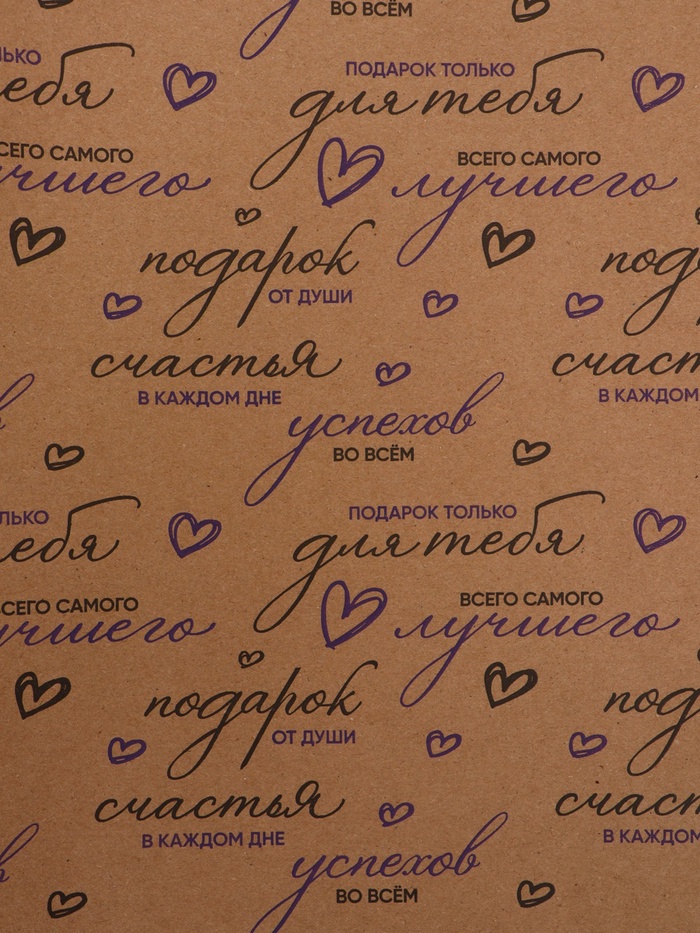 ВО ВСЁМ
ЛЬКО
ПОДАРОК ТОЛЬКО
для тебя
СЕГО САМОГО
ВСЕГО САМОГО
лучшего
подарок
ОТ ДУШИ
счастья
В КАЖДОМ ДНЕ
В КАЖДОМ
успехов
ВО ВСЁМ
ЛЬКО
ПОДАРОК ТОЛЬКО
для тебя
СЕГО САМОГО
ВСЕГО САМОГО
лучшего
подарок
ОТ ДУШИ
счастья
В КАЖДОМ ДНЕ
В КАЖДОМ
успехов
ВО ВСЁМ